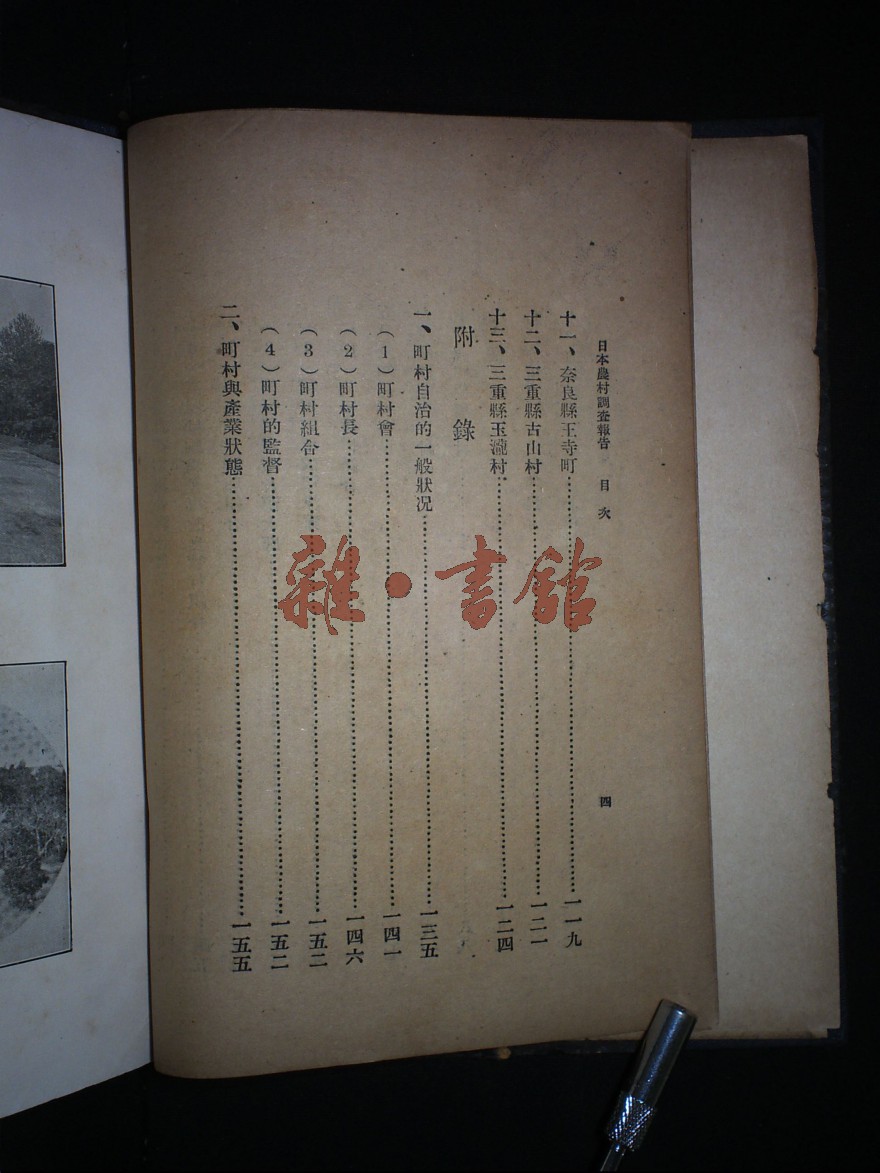 日本農村調查報告 目次 四
十一、奈良縣王寺町……一一九
十二、三重縣古山村……一二一
十三、三重縣玉瀧村……一二四
附錄
一、町村自治的一般狀況……一三五
（1）町村會……一四一
（2）町村長……一四六
（3）町村組合……一五二
（4）町村的監督……一五二
二、町村與產業狀態……一五五
雜·書館